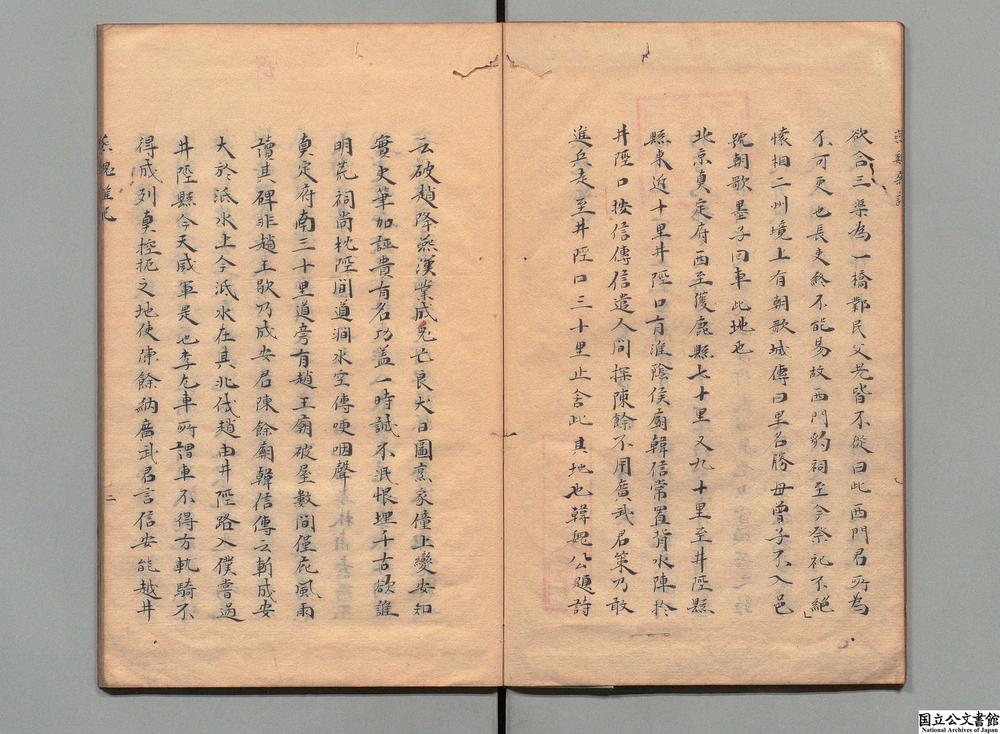 欲合三渠為一橋鄴民父兄皆不從曰此西門君所為
不可更也長吏終不能易故西門豹祠至今祭祀不絕
懷相二州境上有朝歌城傳曰里名勝母曾子不入邑
號朝歌墨子回車此地也
北京真定府西至獲鹿縣七十里又九十里至井陘縣
縣東近十里井陘口有淮陰侯廟韓信常置背水陣於
井陘口按信傳信遣人間探陳餘不用廣武君策乃敢
進兵走至井陘口三十里止舍此其地也韓魏公題詩
云破趙降燕漢業成兔亡良犬日圖烹家僮上變安知
實史筆加誣貴有名功蓋一時誠不泯恨埋千古欲誰
明荒祠尚枕陘間道澗水空傳哽咽聲
真定府南三十里道旁有趙王廟破屋數間僅庇風雨
讀其碑非趙王歇乃成安君陳餘廟韓信傳云斬成安
大於泜水上今泜水在其北伐趙由井陘路入僕嘗過
井陘縣今天威軍是也李左車所謂車不得方軌騎不
得成列真控扼之地使陳餘納廣武君言信安能越井
二
国立公文書館
National Archives of Japan